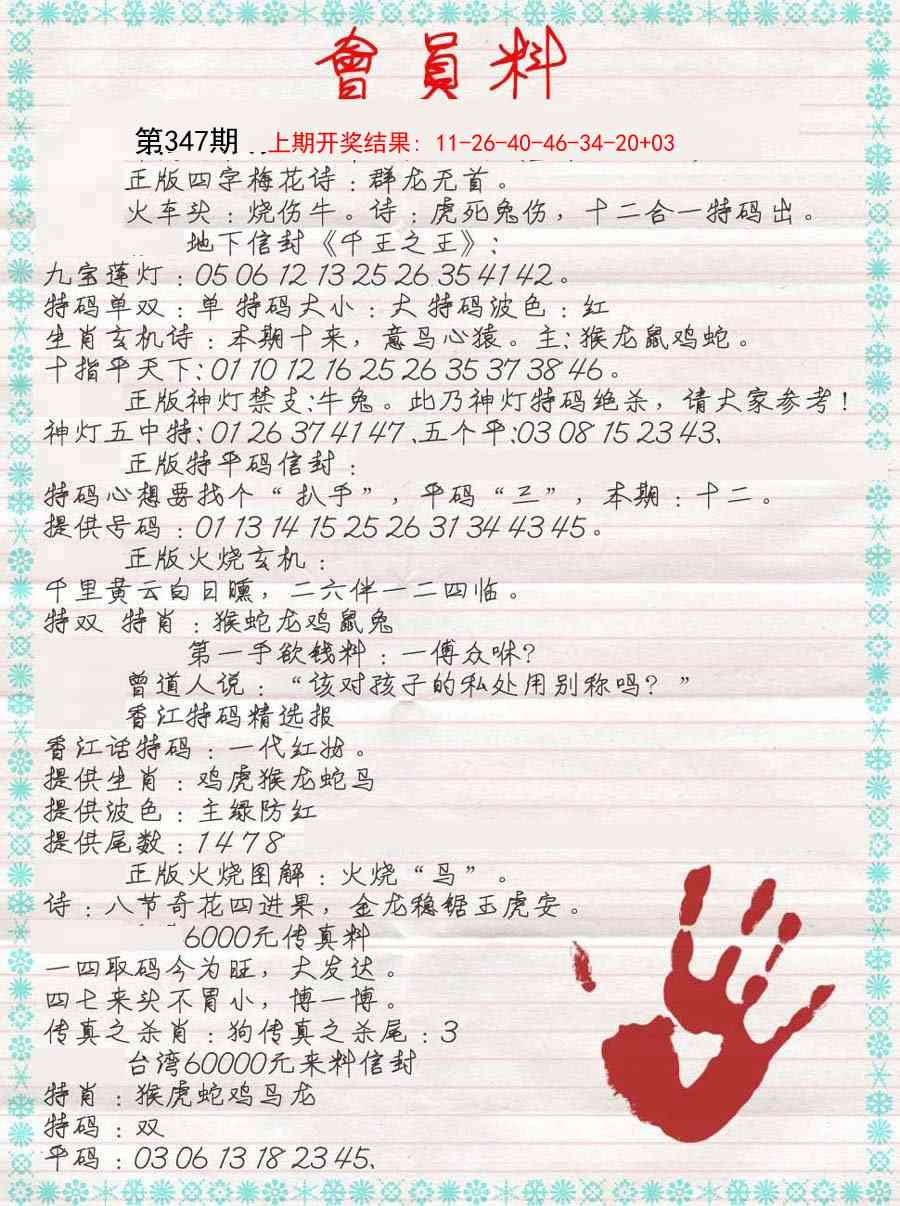 會員料
第347期 上期开奖结果：11-26-40-46-34-20+03
正版四字梅花诗：群龙无首。
火车头：烧伤牛。诗：虎死兔伤，十二合一特码出。
地下信封《千王之王》：
九宝莲灯：05 06 12 13 25 26 35 41 42。
特码单双：单 特码大小：大 特码波色：红
生肖玄机诗：本期十来，意马心猿。主：猴龙鼠鸡蛇。
十指平天下：01 10 12 16 25 26 35 37 38 46。
正版神灯禁支：牛兔。此乃神灯特码绝杀，请大家参考！
神灯五中特：01 26 37 41 47、五个平：03 08 15 23 43、
正版特平码信封：
特码心想要找个“扒手”，平码“三”，本期：十二。
提供号码：01 13 14 15 25 26 31 34 43 45。
正版火烧玄机：
千里黄云白日曛，二六伴一二四临。
特双 特肖：猴蛇龙鸡鼠兔
第一手欲钱料：一傅众咻？
曾道人说：“该对孩子的私处用别称吗？”
香江特码精选报
香江话特码：一代红妆。
提供生肖：鸡虎猴龙蛇马
提供波色：主绿防红
提供尾数：1 4 7 8
正版火烧图解：火烧“鸟”。
诗：八节奇花四进果，金龙稳锯玉虎安。
6000元传真料
一四取码今为旺，大发达。
四七来头不胃小，博一博。
传真之杀肖：狗传真之杀尾：3
台湾60000元来料信封
特肖：猴虎蛇鸡马龙
特码：双
平码：03 06 13 18 23 45、